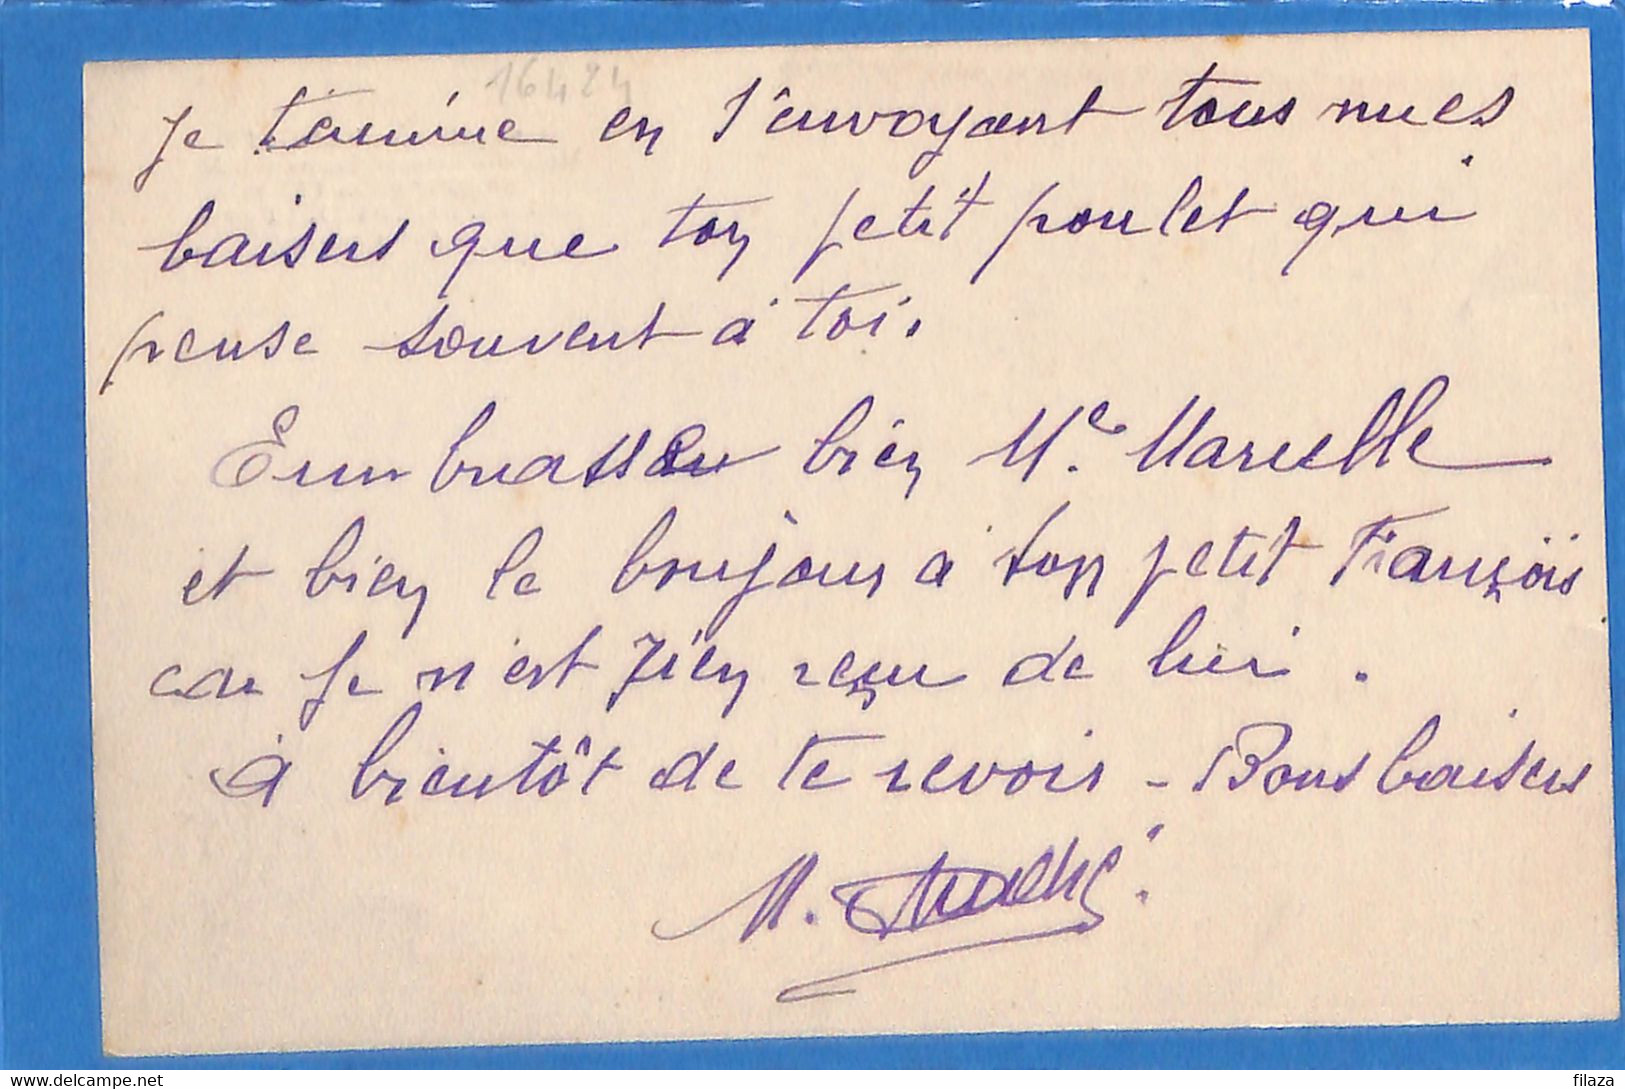 16424
Je termine en t'envoyant tous mes
baisers que ton petit poulet qui
pense souvent à toi.
Embrasser bien Me. Marcelle
et bien le bonjour à ton petit François
car je n'est rien reçu de lui.
à bientôt de te revoir - Bons baisers
M.
filaza